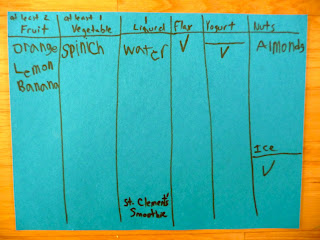 at least 2
Fruit
Orange
Lemon
Banana
at least 1
Vegetable
Spinch
1
Liquid
water
Flax
✓
Yogurt
✓
Nuts
Almonds
Ice
✓
St. Clement's
Smoothie